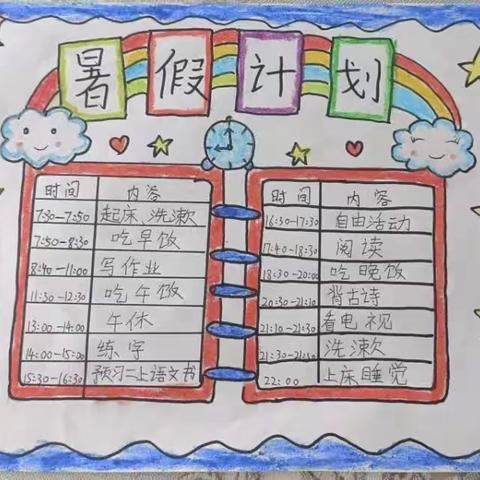 暑假计划
时间 内容
7:30-7:50 起床、洗漱
7:50-8:30 吃早饭
8:40-11:00 写作业
11:30-12:30 吃午饭
13:00-14:00 午休
14:00-15:00 练字
15:30-16:30 预习二上语文书
时间 内容
16:30-17:30 自由活动
17:40-18:30 阅读
18:30-20:00 吃晚饭
20:30-21:10 背古诗
21:10-21:30 看电视
21:30-21:50 洗漱
22:00 上床睡觉